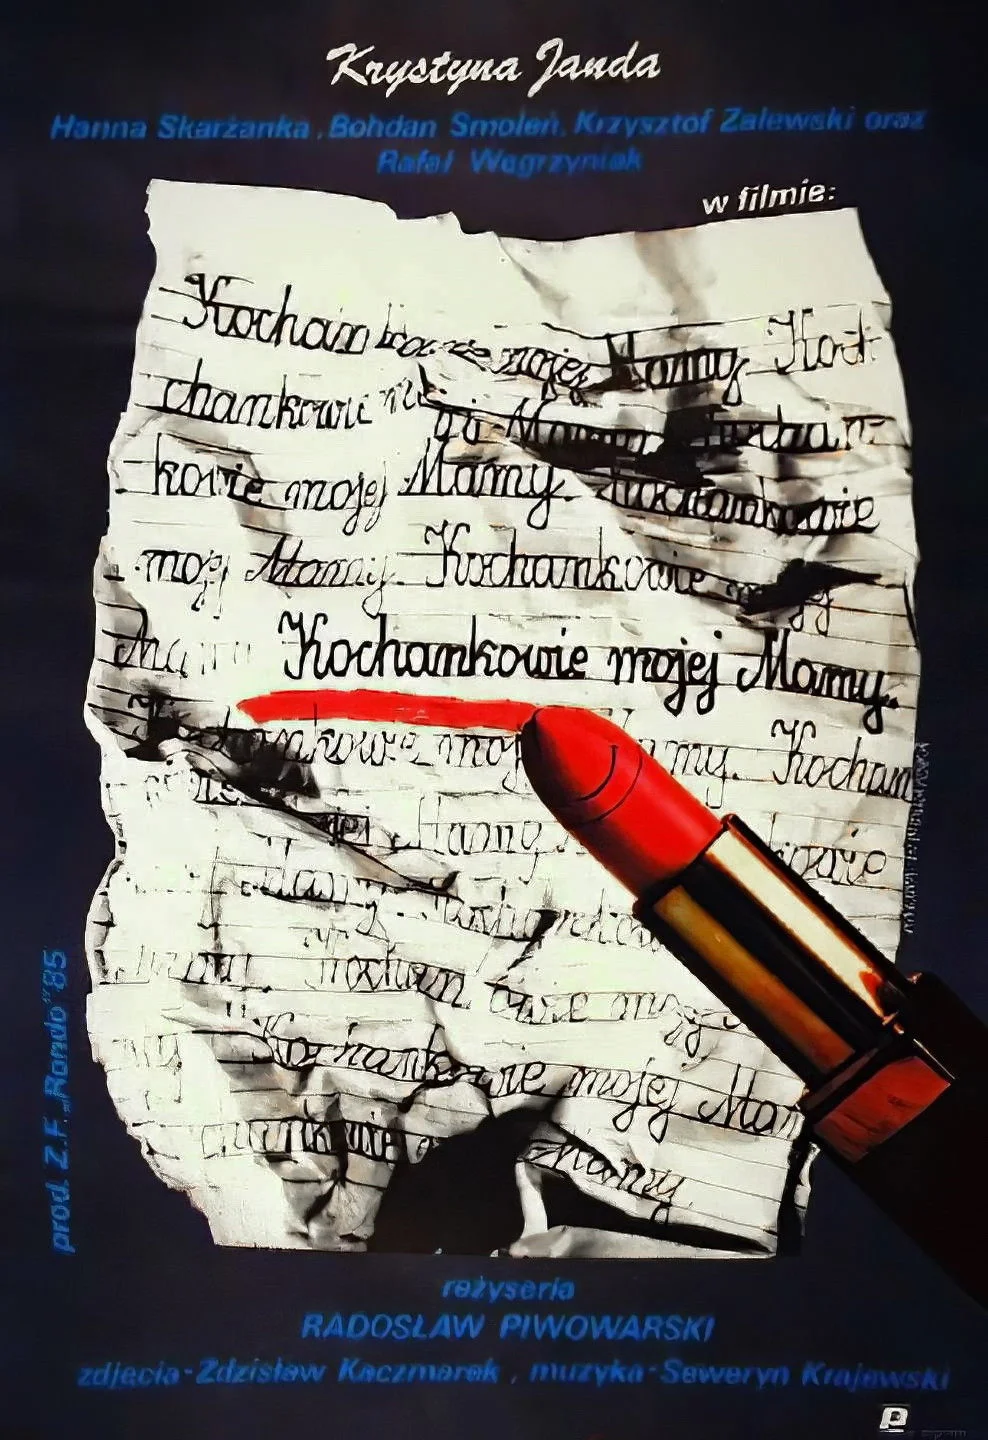 Krystyna Janda
Hanna Skarżanka, Bohdan Smoleń, Krzysztof Zalewski oraz
Rafał Węgrzyniak
w filmie:
Kochankowie mojej Mamy. Koch
chankowie mojej Mamy. Kochan
kowie mojej Mamy. Kochankowie
mojej Mamy. Kochankowie mojej
Mamy. Kochankowie mojej Mamy.
Kochankowie mojej Mamy. Kochan
Mamy
Mamy.
Kochankowie mojej Mam
Mamy
prod. Z.F. „Rondo" 85
reżyseria
RADOSŁAW PIWOWARSKI
zdjęcia - Zdzisław Kaczmarek, muzyka - Seweryn Krajewski